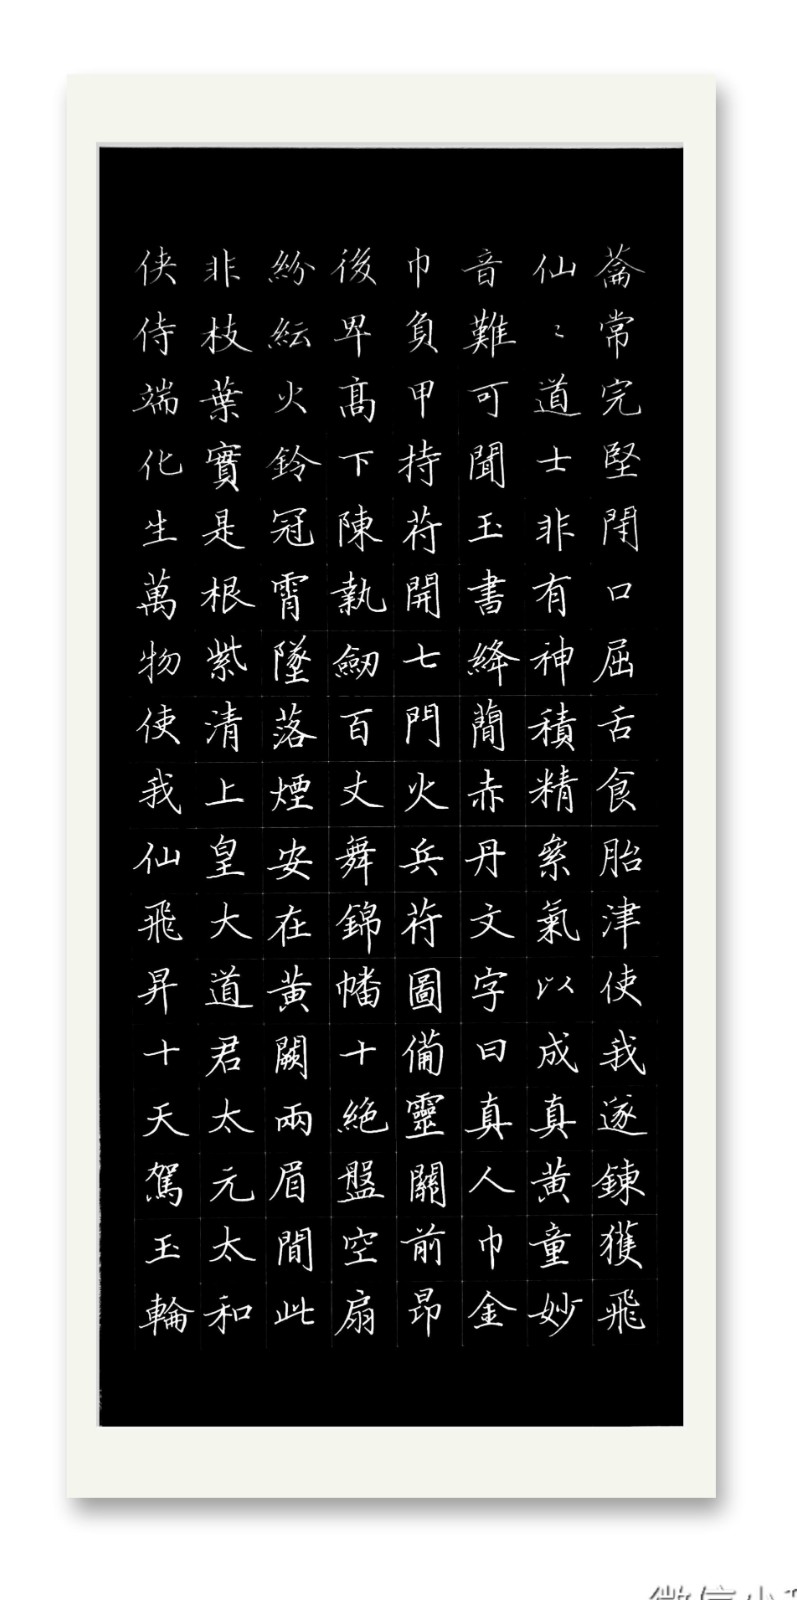 蕭常完堅閉口屈舌食胎津使我遂鍊獲飛
仙〻道士非有神積精絫氣以成真黃童妙
音難可聞玉書絳蕳赤丹文字曰真人巾金
巾負甲持苻開七門火兵苻圖備靈關前昂
後卑高下陳執劒百丈舞錦幡十絕盤空扇
紛紜火鈴冠霄墜落煙安在黃闕兩眉間此
非枝葉實是根紫清上皇大道君太元太和
俠侍端化生萬物使我仙飛昇十天駕玉輪